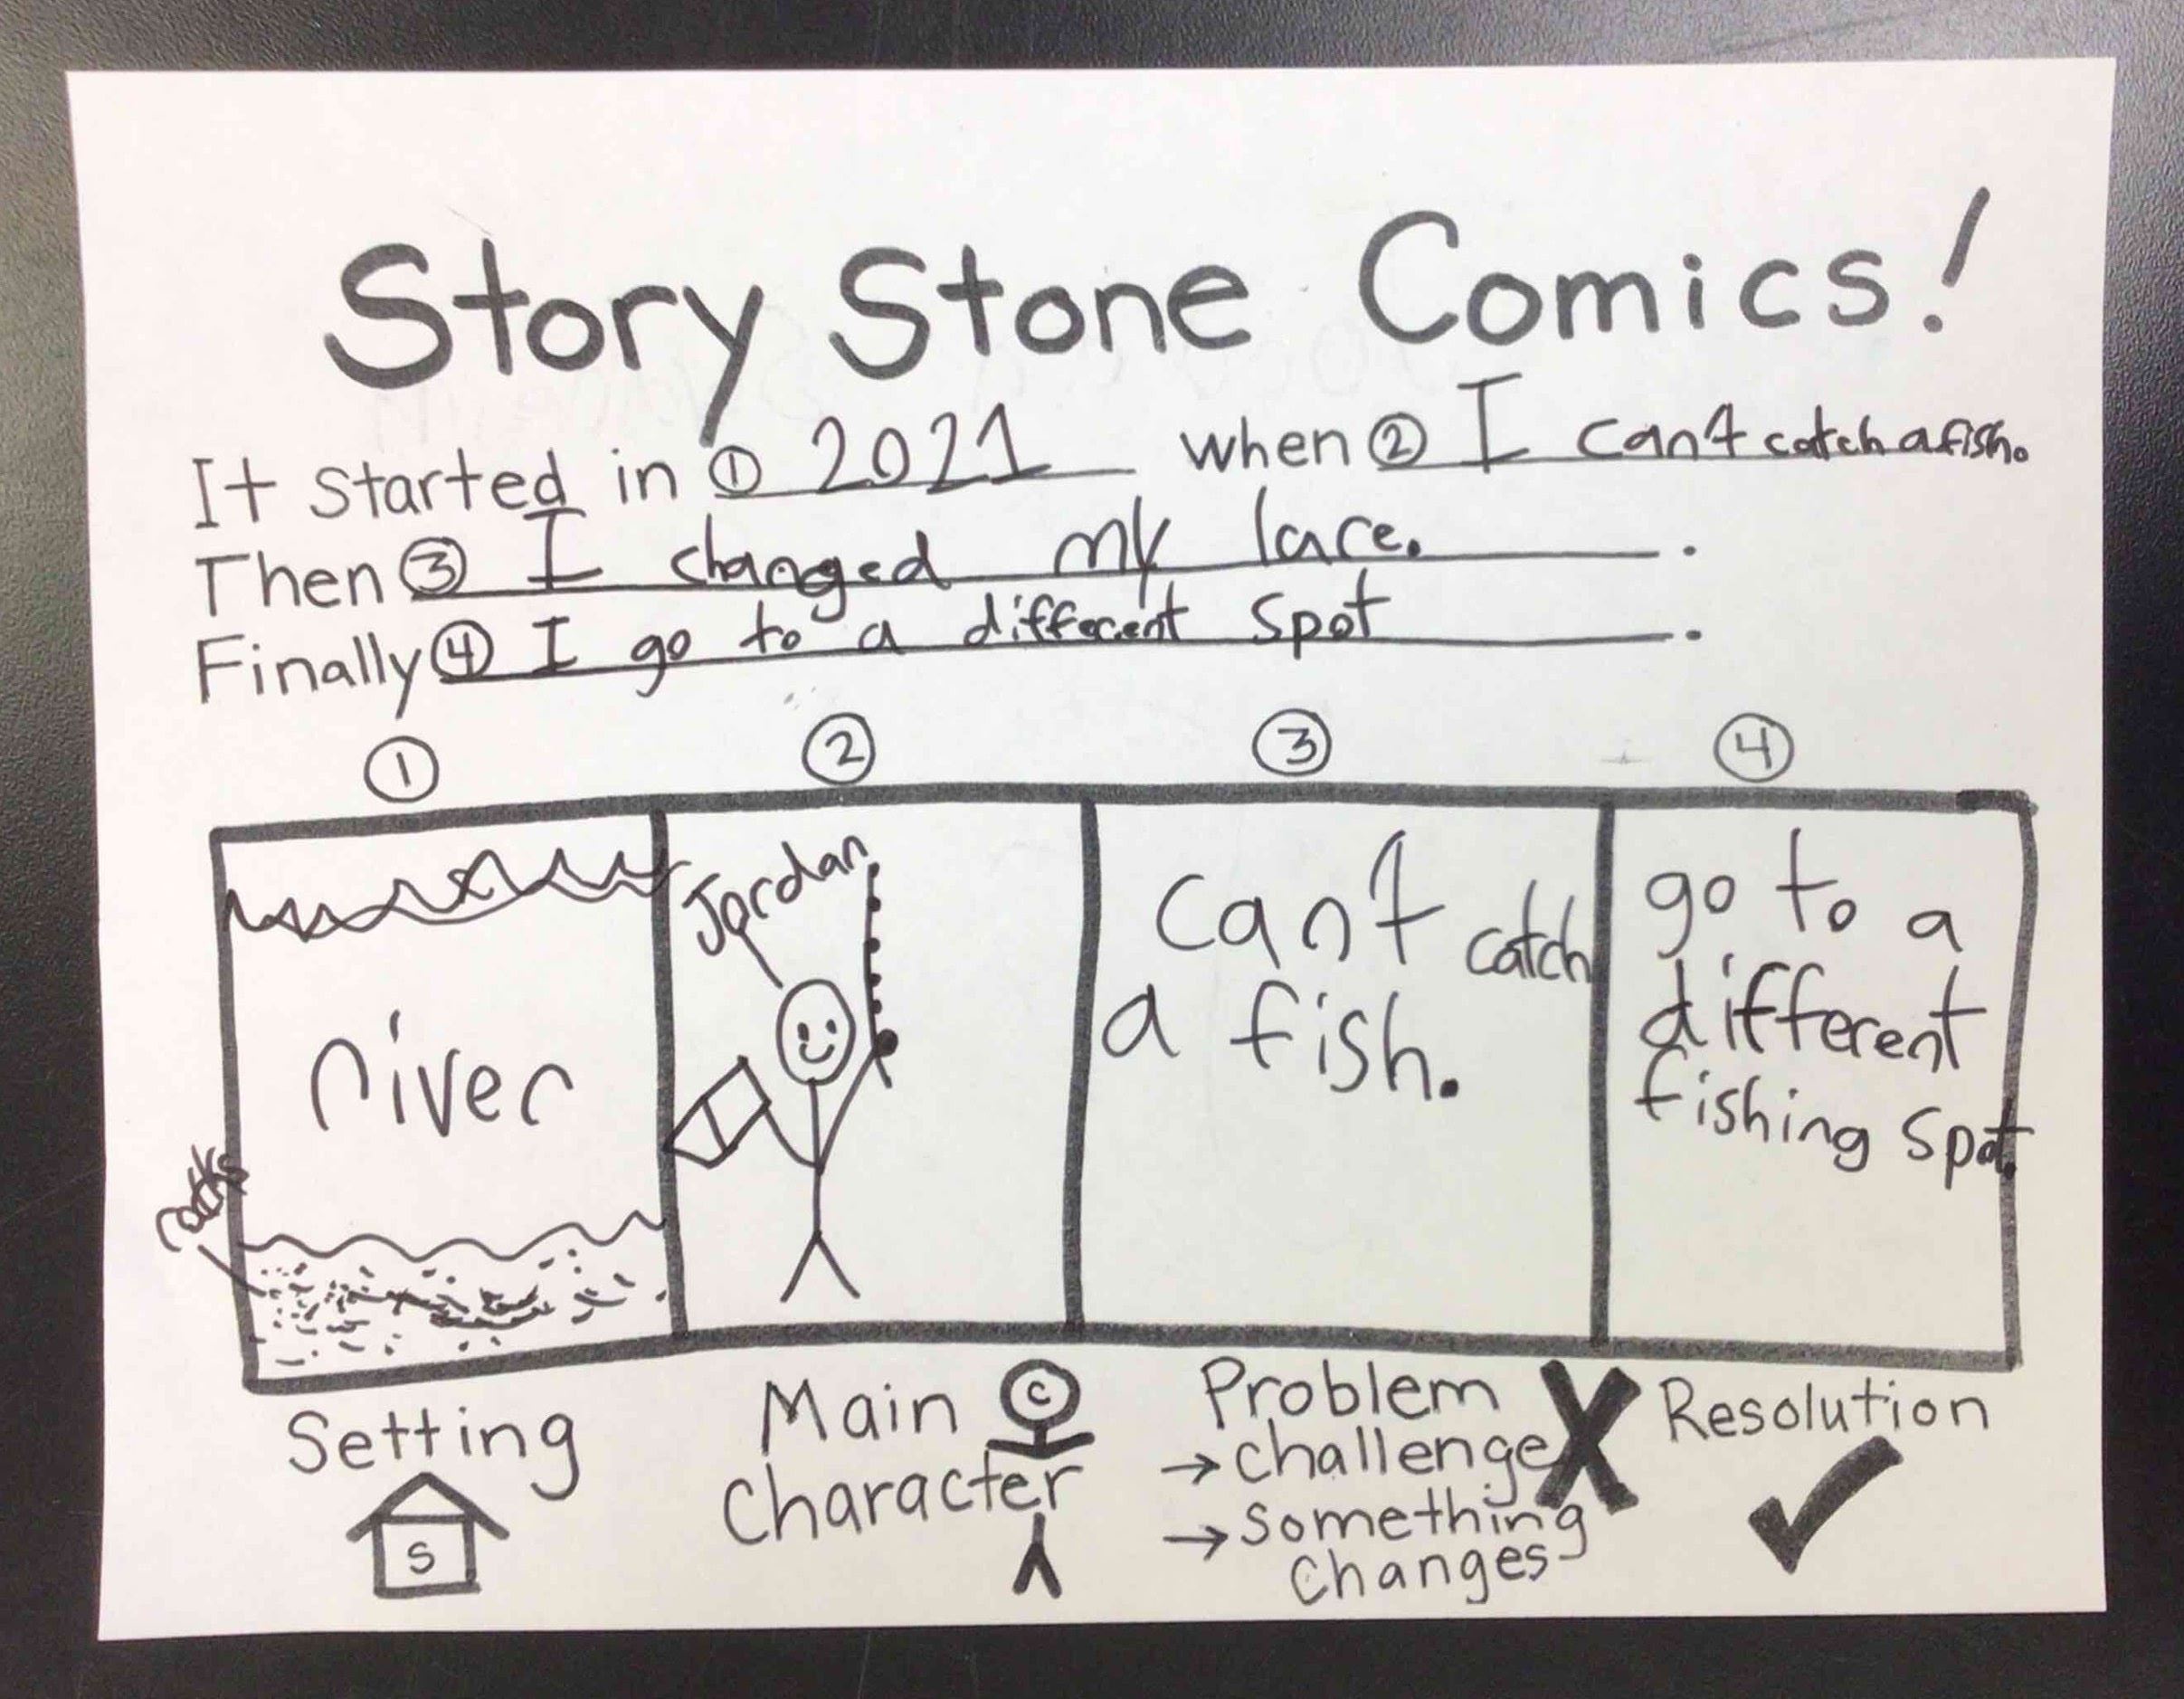 Story Stone Comics!
It started in ① 2021 when ② I can't catch a fish.
Then ③ I changed my lare.
Finally ④ I go to a different spot.
① ② ③ ④
river
rocks
Jordan
can't catch
a fish.
go to a
different
fishing spot.
Setting
S
Main
Character
C
Problem
→ challenge
→ something
changes
X
Resolution
✓